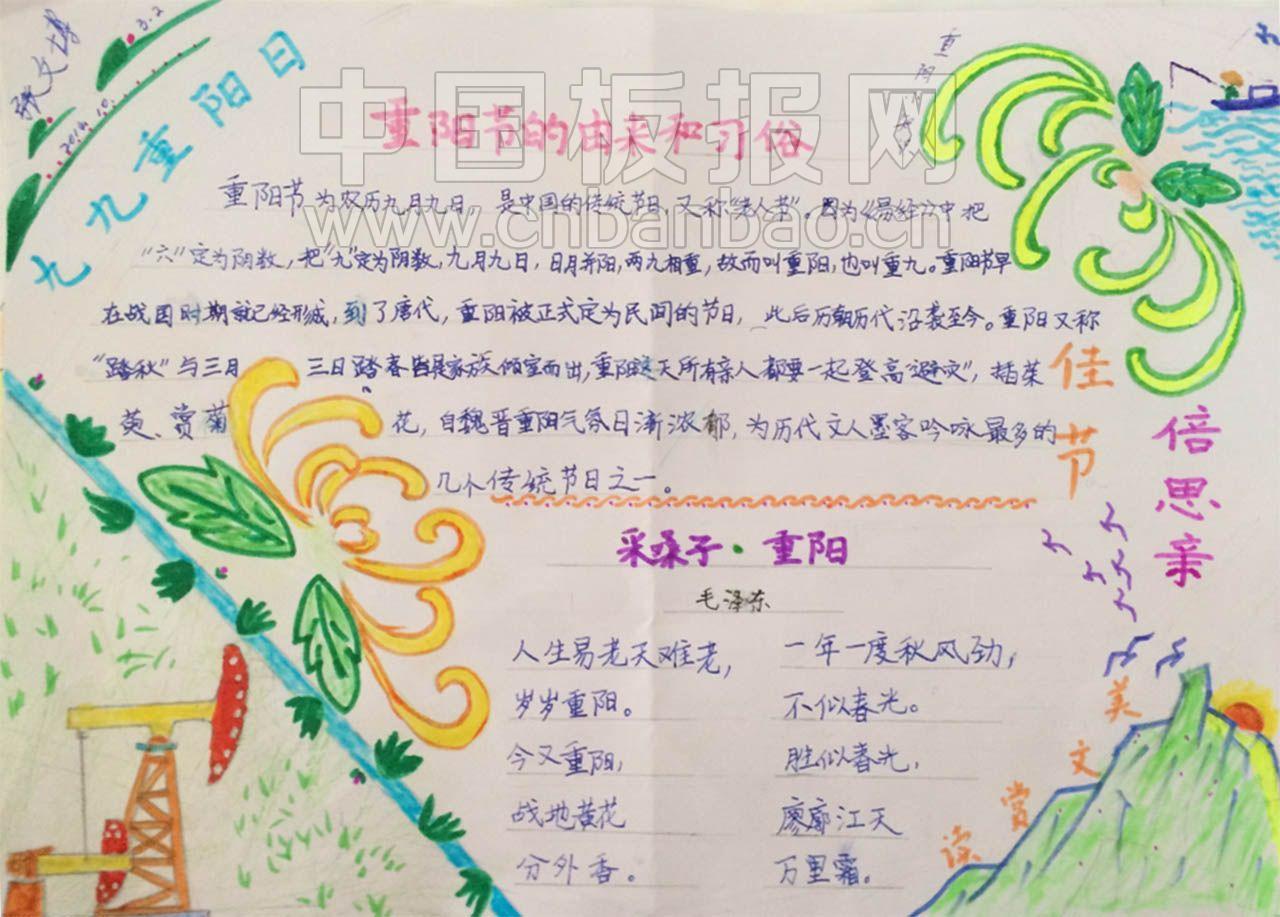 九九重阳日
中国板报网
www.cnbanbao.cn
重阳节的由来和习俗
重阳节为农历九月九日，是中国的传统节日，又称“老人节”。因为《易经》中把
“六”定为阴数，把“九”定为阴数，九月九日，日月并阳，两九相重，故而叫重阳，也叫重九。重阳节早
在战国时期就已经形成，到了唐代，重阳被正式定为民间的节日，此后历朝历代沿袭至今。重阳又称
“踏秋”与三月三日踏春皆是家族倾室而出，重阳这天所有亲人都要一起登高“避灾”，插茱
萸、赏菊花，自魏晋重阳气氛日渐浓郁，为历代文人墨客吟咏最多的
几个传统节日之一。
佳节
倍思亲
采桑子·重阳
毛泽东
人生易老天难老，
岁岁重阳。
今又重阳，
战地黄花
分外香。
一年一度秋风劲，
不似春光。
胜似春光，
廖廓江天
万里霜。
美文赏读